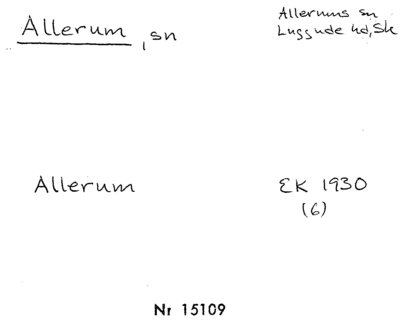 Allerum, sn
Allerums sn
Luggude hd, Sk
Allerum
EK 1930
(6)
Nr 15109